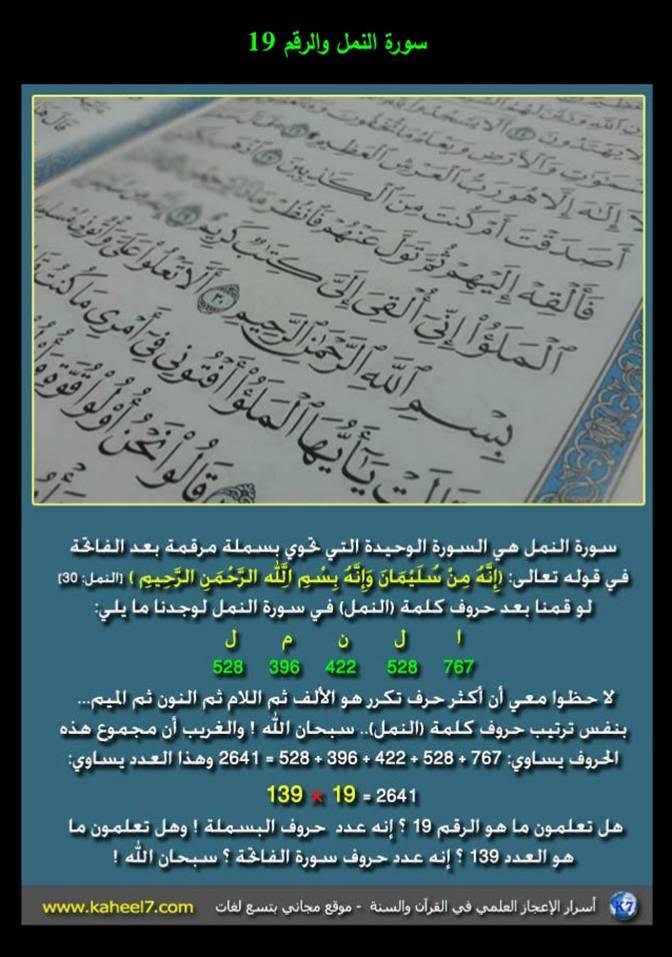 سورة النمل والرقم 19
أَصَدَقْتَ أَمْ كُنتَ مِنَ ٱلْكَٰذِبِينَ
فَأَلْقِهْ إِلَيْهِمْ ثُمَّ تَوَلَّ عَنْهُمْ فَٱنظُرْ
ٱلْمَلَؤُا۟ إِنِّىٓ أُلْقِىَ إِلَىَّ كِتَٰبٌ كَرِيمٌ
بِسْمِ ٱللَّهِ ٱلرَّحْمَٰنِ ٱلرَّحِيمِ ٣٠ أَلَّا تَعْلُوا۟ عَلَىَّ وَأْتُونِى
قَالَتْ يَٰٓأَيُّهَا ٱلْمَلَؤُا۟ أَفْتُونِى فِىٓ أَمْرِى مَا كُنتُ
قَالُوا۟ نَحْنُ أُو۟لُوا۟ قُوَّةٍ
سورة النمل هي السورة الوحيدة التي تحوي بسملة مرقمة بعد الفاتحة
في قوله تعالى: (إِنَّهُ مِنْ سُلَيْمَانَ وَإِنَّهُ بِسْمِ اللَّهِ الرَّحْمَنِ الرَّحِيمِ) [النمل: 30]
لو قمنا بعد حروف كلمة (النمل) في سورة النمل لوجدنا ما يلي:
ا ل ن م ل
767 528 422 396 528
لا حظوا معي أن أكثر حرف تكرر هو الألف ثم اللام ثم النون ثم الميم...
بنفس ترتيب حروف كلمة (النمل).. سبحان الله ! والغريب أن مجموع هذه
الحروف يساوي: 767 + 528 + 422 + 396 + 528 = 2641 وهذا العدد يساوي:
2641 = 19 × 139
هل تعلمون ما هو الرقم 19 ؟ إنه عدد حروف البسملة ! وهل تعلمون ما
هو العدد 139 ؟ إنه عدد حروف سورة الفاتحة ؟ سبحان الله !
K7 أسرار الإعجاز العلمي في القرآن والسنة - موقع مجاني بتسع لغات www.kaheel7.com